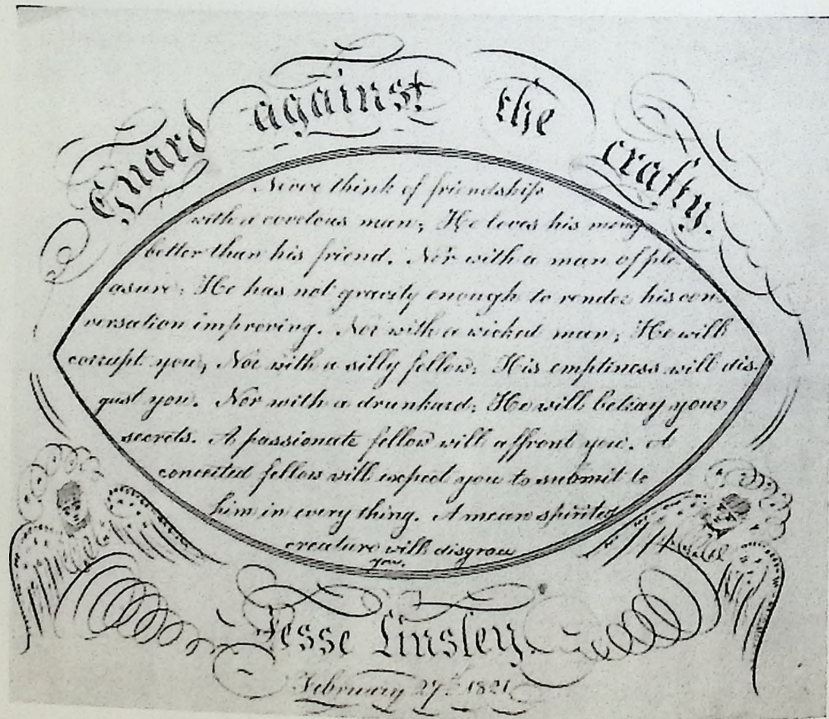 Guard against the crafty.
Never think of friendship
with a covetous man; He loves his money
better than his friend. Nor with a man of ple
asure; He has not gravity enough to render his con
versation improving. Nor with a wicked man; He will
corrupt you; Nor with a silly fellow; His emptiness will dis
gust you. Nor with a drunkard; He will betray your
secrets. A passionate fellow will affront you. A
conceited fellow will expect you to submit to
him in every thing. A mean spirited
creature will disgrace
you.
Jesse Linsley
February 27th 1821